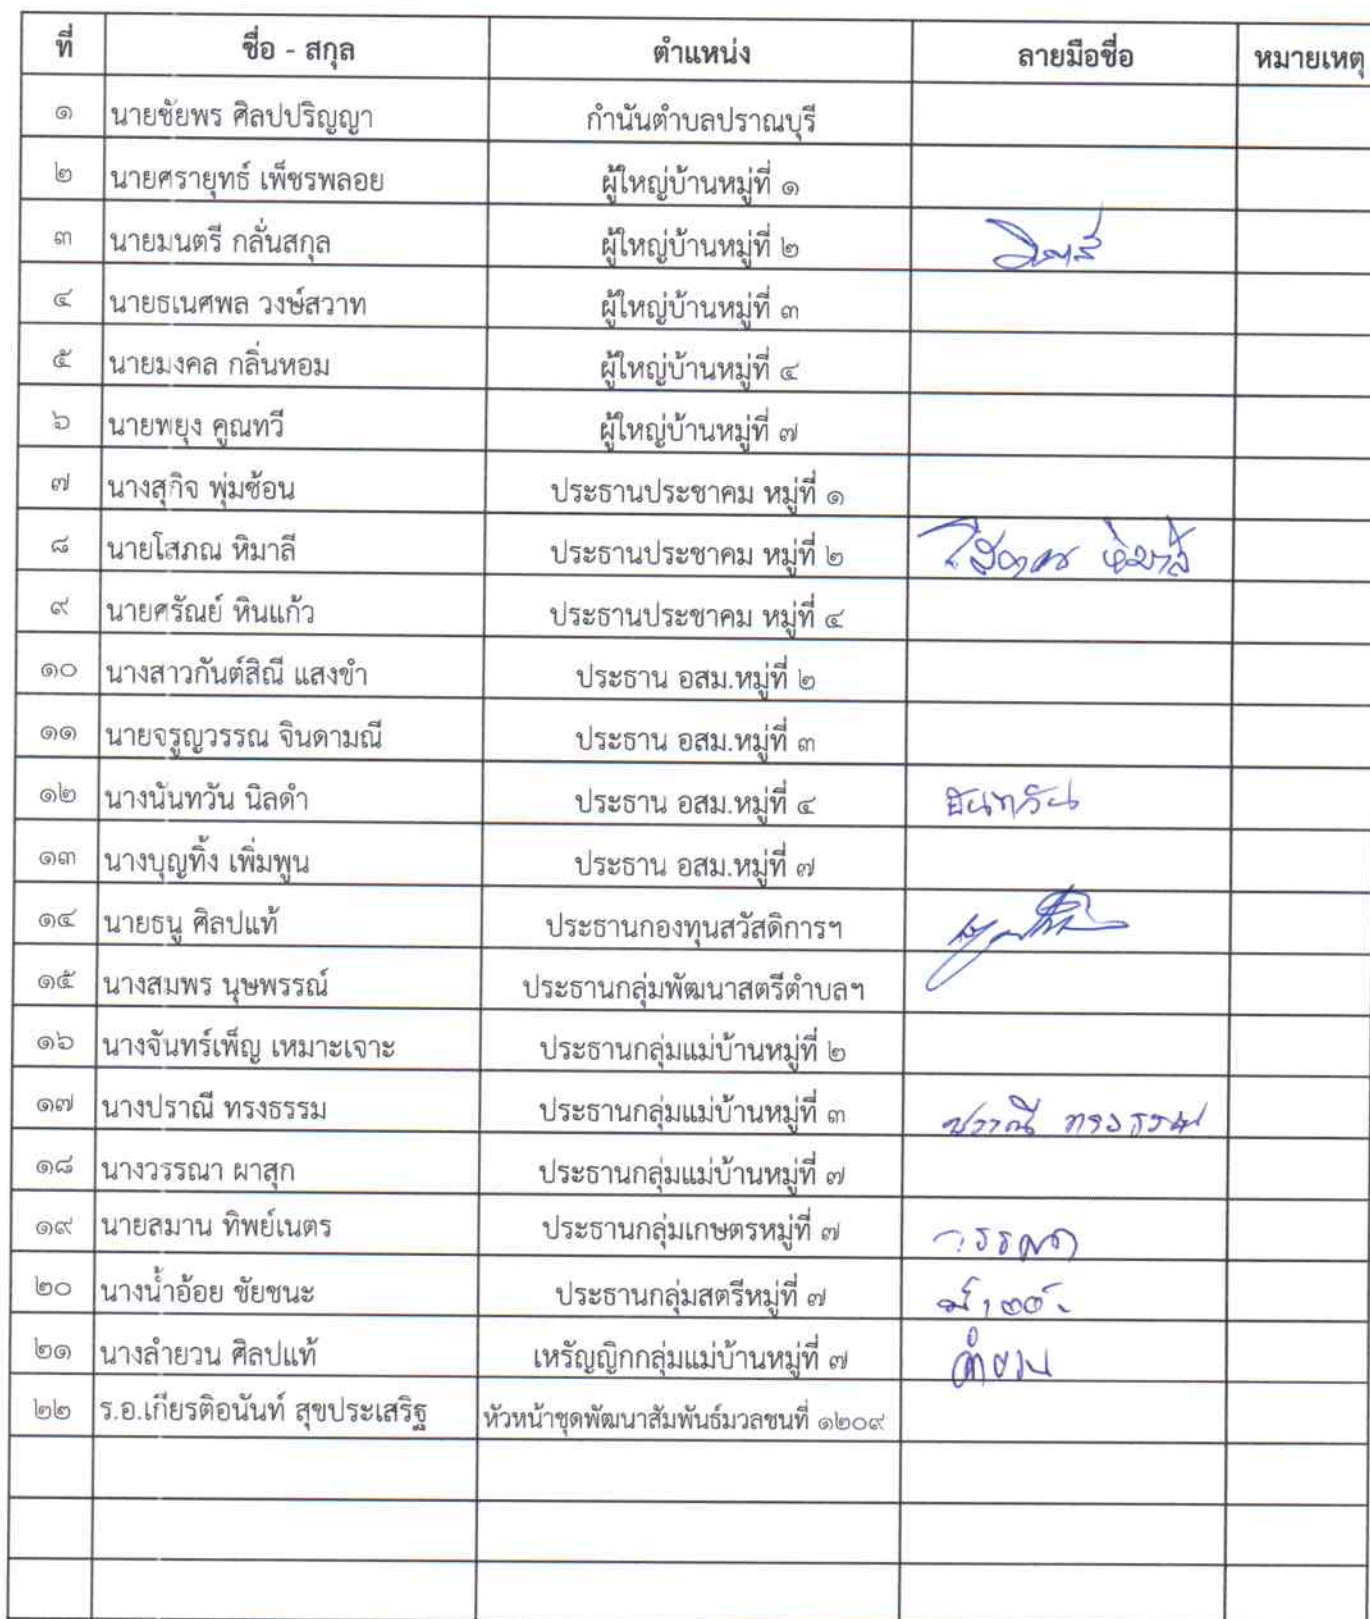 ที่ ชื่อ - สกุล ตำแหน่ง ลายมือชื่อ หมายเหตุ
๑ นายชัยพร ศิลปปริญญา กำนันตำบลปราณบุรี
๒ นายศรายุทธ์ เพ็ชรพลอย ผู้ใหญ่บ้านหมู่ที่ ๑
๓ นายมนตรี กลั่นสกุล ผู้ใหญ่บ้านหมู่ที่ ๒
๔ นายธเนศพล วงษ์สวาท ผู้ใหญ่บ้านหมู่ที่ ๓
๕ นายมงคล กลิ่นหอม ผู้ใหญ่บ้านหมู่ที่ ๔
๖ นายพยุง คูณทวี ผู้ใหญ่บ้านหมู่ที่ ๗
๗ นางสุกิจ พุ่มซ้อน ประธานประชาคม หมู่ที่ ๑
๘ นายโสภณ หิมาลี ประธานประชาคม หมู่ที่ ๒ โสภณ หิมาลี
๙ นายศรัณย์ หินแก้ว ประธานประชาคม หมู่ที่ ๔
๑๐ นางสาวกันต์สิณี แสงขำ ประธาน อสม.หมู่ที่ ๒
๑๑ นายจรูญวรรณ จินดามณี ประธาน อสม.หมู่ที่ ๓
๑๒ นางนันทวัน นิลดำ ประธาน อสม.หมู่ที่ ๔ นันทวัน
๑๓ นางบุญทิ้ง เพิ่มพูน ประธาน อสม.หมู่ที่ ๗
๑๔ นายธนู ศิลปแท้ ประธานกองทุนสวัสดิการฯ
๑๕ นางสมพร นุษพรรณ์ ประธานกลุ่มพัฒนาสตรีตำบลฯ
๑๖ นางจันทร์เพ็ญ เหมาะเจาะ ประธานกลุ่มแม่บ้านหมู่ที่ ๒
๑๗ นางปราณี ทรงธรรม ประธานกลุ่มแม่บ้านหมู่ที่ ๓ ปราณี ทรงธรรม
๑๘ นางวรรณา ผาสุก ประธานกลุ่มแม่บ้านหมู่ที่ ๗
๑๙ นายสมาน ทิพย์เนตร ประธานกลุ่มเกษตรหมู่ที่ ๗ วรรณา
๒๐ นางน้ำอ้อย ชัยชนะ ประธานกลุ่มสตรีหมู่ที่ ๗
๒๑ นางลำยวน ศิลปแท้ เหรัญญิกกลุ่มแม่บ้านหมู่ที่ ๗ ลำยวน
๒๒ ร.อ.เกียรติอนันท์ สุขประเสริฐ หัวหน้าชุดพัฒนาสัมพันธ์มวลชนที่ ๑๒๐๙